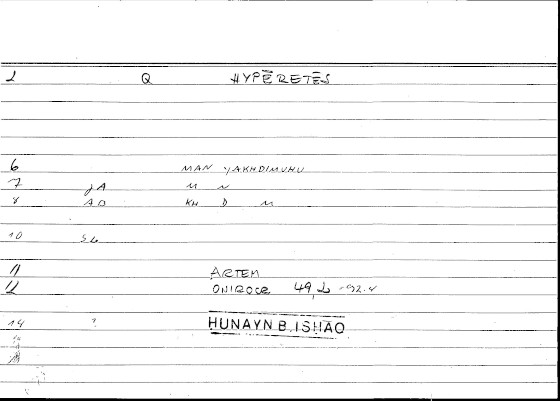 2 Q HYPĒRETĒS
6 MAN YAKHDIMUHU
7 JA M N
8 AD KH D M
10 SL
11 ARTEM
12 ONIROCR 49,2 -92.4
14 ? HUNAYN B. ISHAO